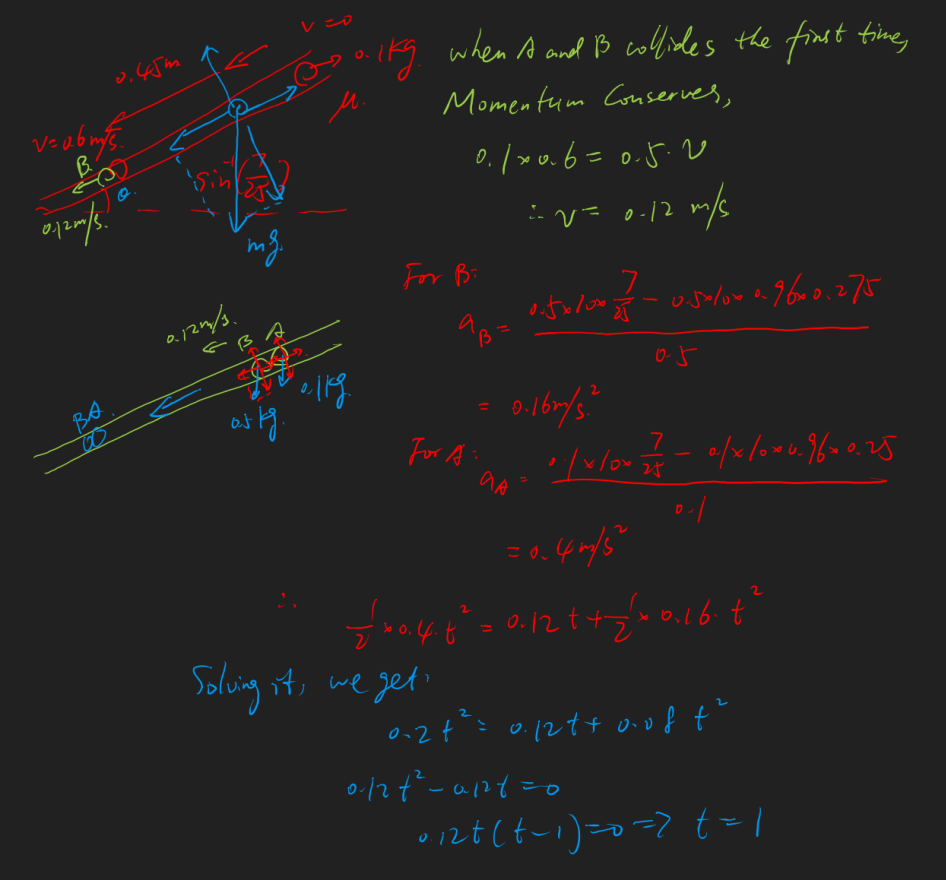 v=0
0.45m
0.1kg
μ.
v=0.6m/s.
B.
θ.
sin⁻¹(7/25)
0.12m/s.
mg.
when A and B collides the first time,
Momentum Conserves,
0.1×0.6 = 0.5·v
∴ v = 0.12 m/s
For B:
a_B = (0.5×10×7/25 − 0.5×10×0.96×0.275)/0.5
= 0.16m/s².
For A:
a_A = (0.1×10×7/25 − 0.1×10×0.96×0.25)/0.1
= 0.4m/s²
0.12m/s.
B A
0.1kg.
0.5kg.
B A.
∴ 1/2×0.4·t² = 0.12t+1/2×0.16·t²
Solving it, we get,
0.2t² = 0.12t + 0.08t²
0.12t² − 0.12t = 0
0.12t(t−1)=0 => t=1